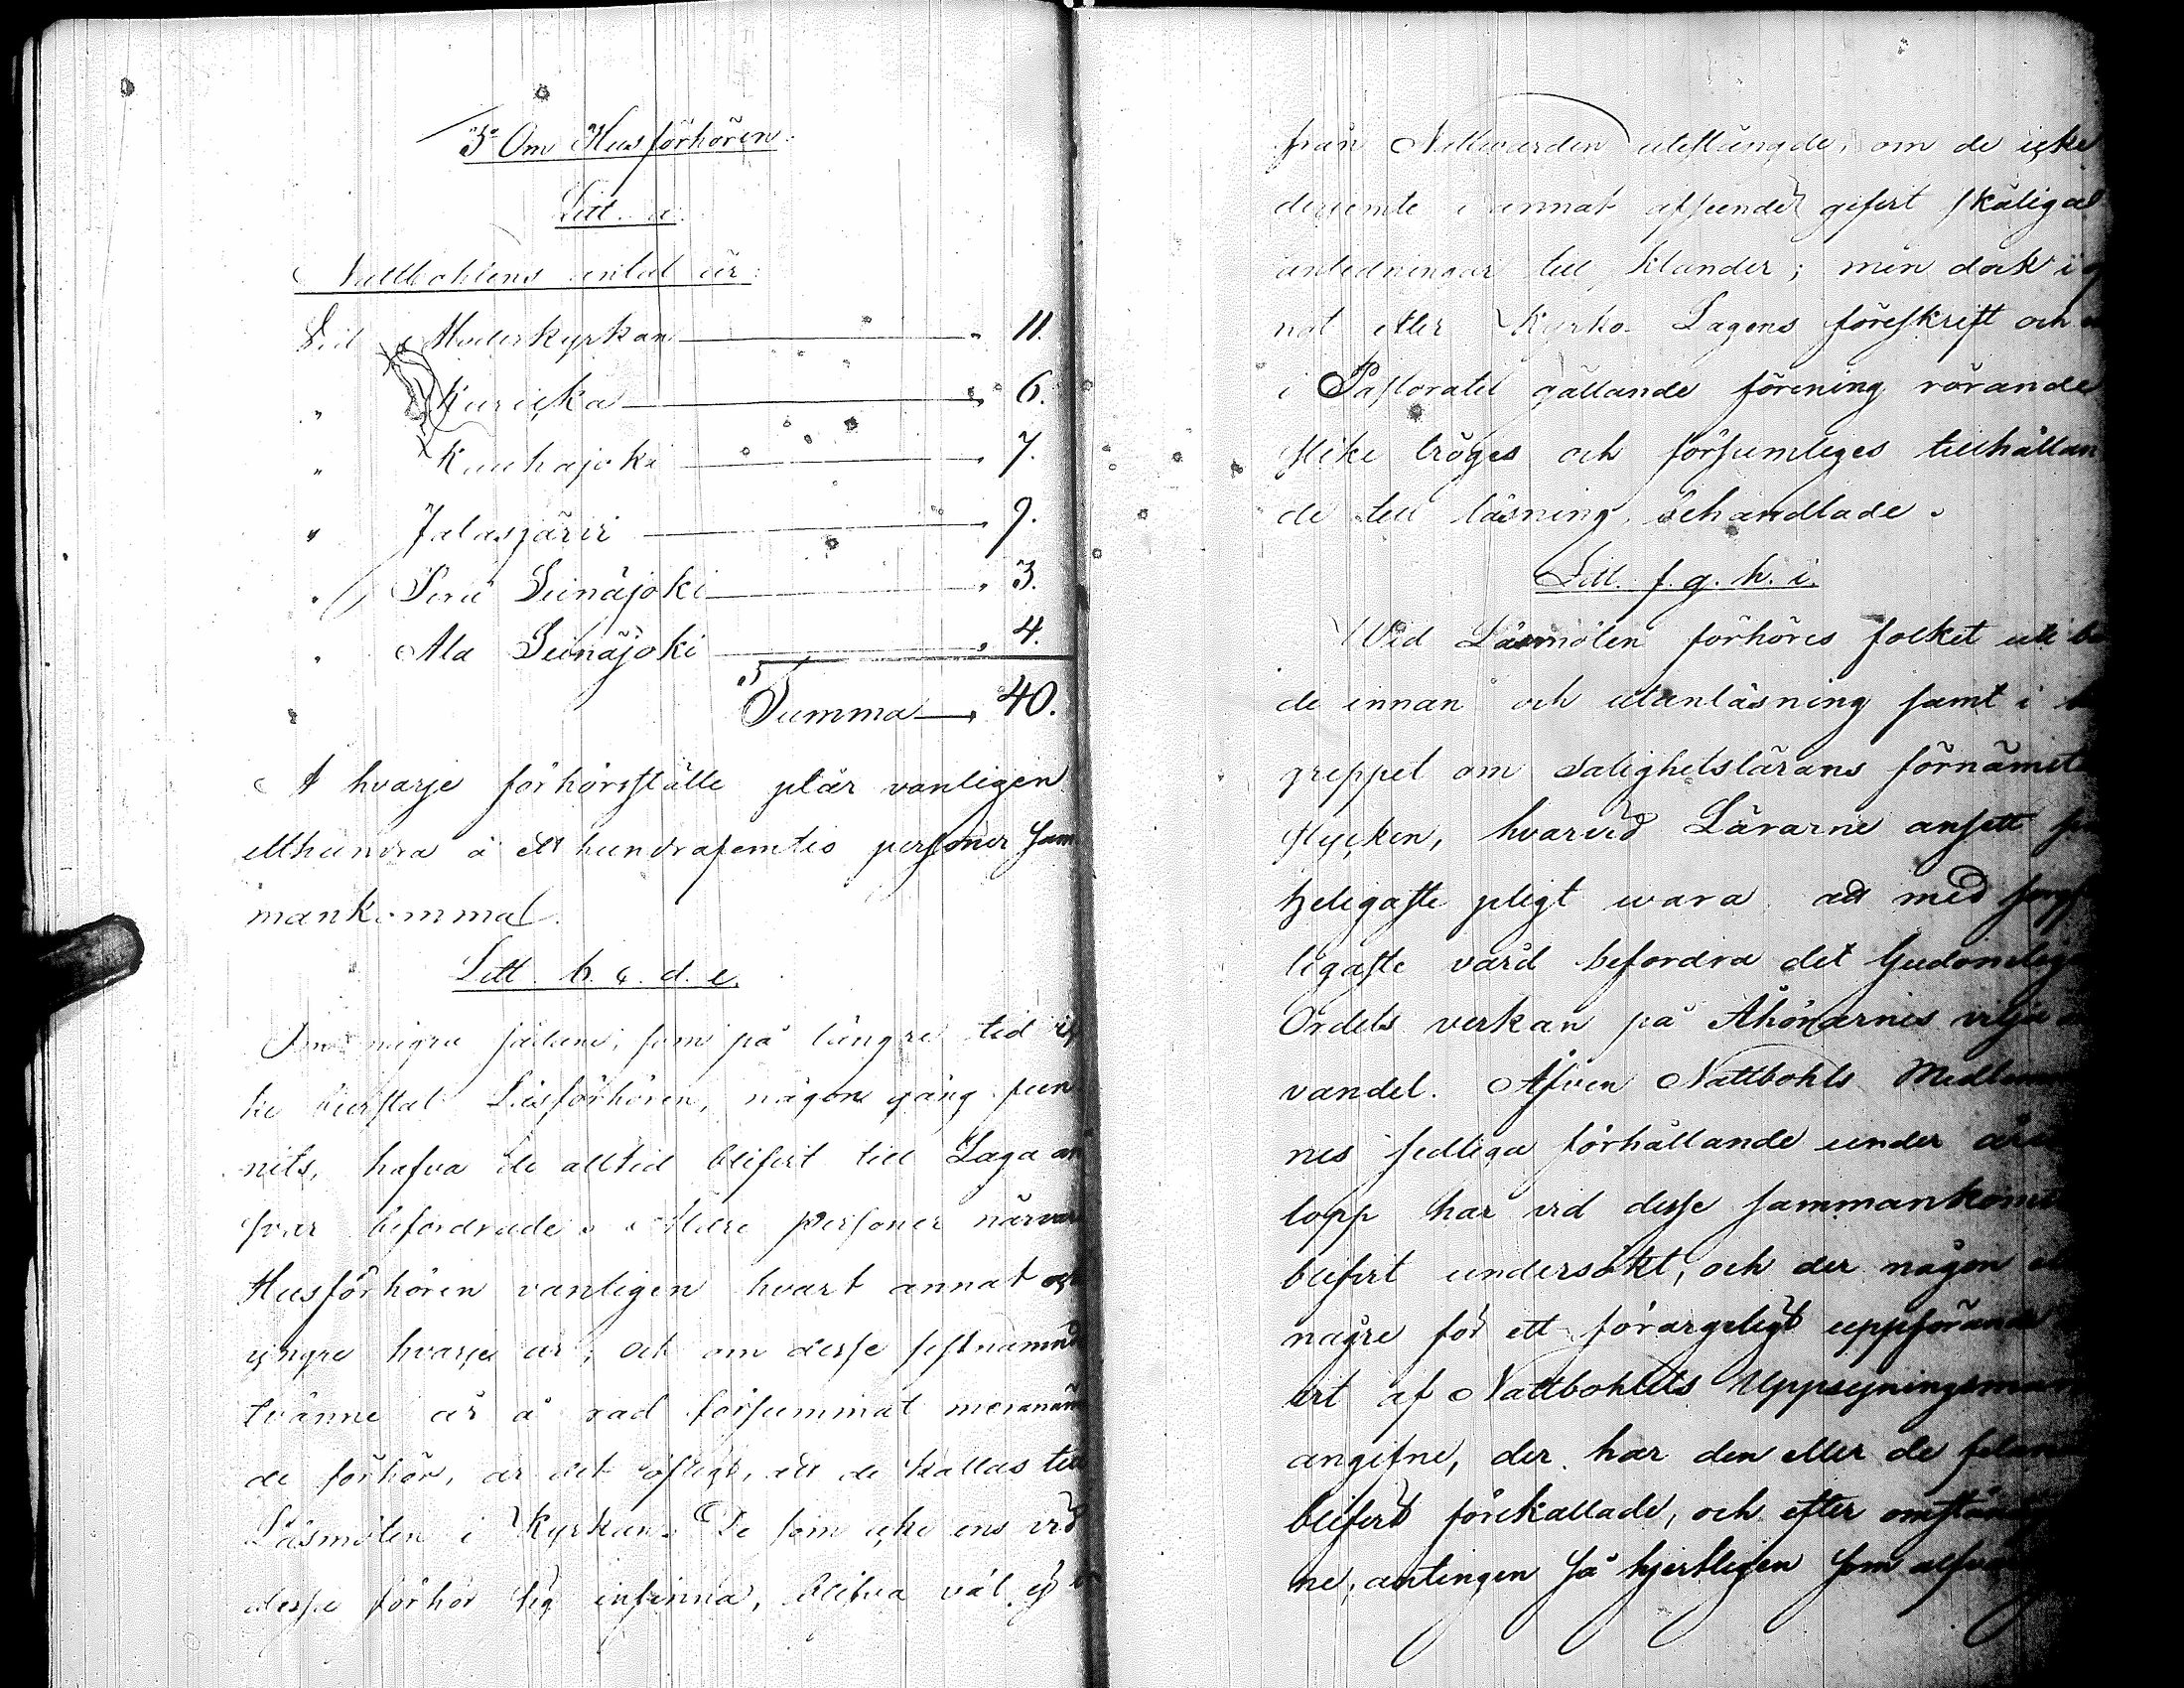 3º Om Husförhören.
Litt. a.
Nattbohlens antal är:
Vid Moderkyrkan 11.
" Kuricka " 6.
" Kauhajoki 7.
" Jalasjärvi " 9.
" Perä Seinäjoki " 3.
" Ala Seinäjoki " 4.
Summa 40.
A hvarje förhörsställe plär vanligen
etthundra à ett hundrafemtio personer sam
mankommal.
Litt. b. c. d. e.
Om några sådane, som på längre tid ic
ke bevistat Läsförhören, någon gång fun
nits, hafva de alltid blifvit till Laga an
svar befordrade. Äldre personer närvara
Husförhören vanligen hvart annat och
yngre hvarje år; och om desse sistnämn
tvänne år å rad försummat
de förhör, är det öfligt, att de kallas till
Läsmöten i Kyrkan. De som icke ens vid
desse förhör sig infinna, blifva väl ej
från Nattvarden utestängde, om de icke
derjemte i annat afseende gifvit skäliga
anledningar till klander; men dock
not efter Kyrko Lagens föreskrift och
i Pastoratet gällande förening rörande
slike tröges och försumliges tillhållan
de till läsning, behandlade.
Litt. f. g. h. i.
Wid Läsmöten förhöres folket uti bå
de innan och utanläsning samt i be
greppet om salighetslärans förnämsta
stycken, hvarvid Lärarne ansett
heligaste pligt wara att med sorgfä
ligaste vård befordra det Gudomliga
Ordets verkan på Åhörarnes vilja
vandel. Äfven Nattbohls Medlemmar
nes sedliga förhållande under
lopp har vid desse sammankoms
blifvit undersökt, och der någon el
någre för ett förargeligt uppförande
vit af Nattbohlets Uppsyningsman
angifne, der har den eller de felan
blifvit förekallade, och efter omständ
ne, antingen så hjertligen som alfvar